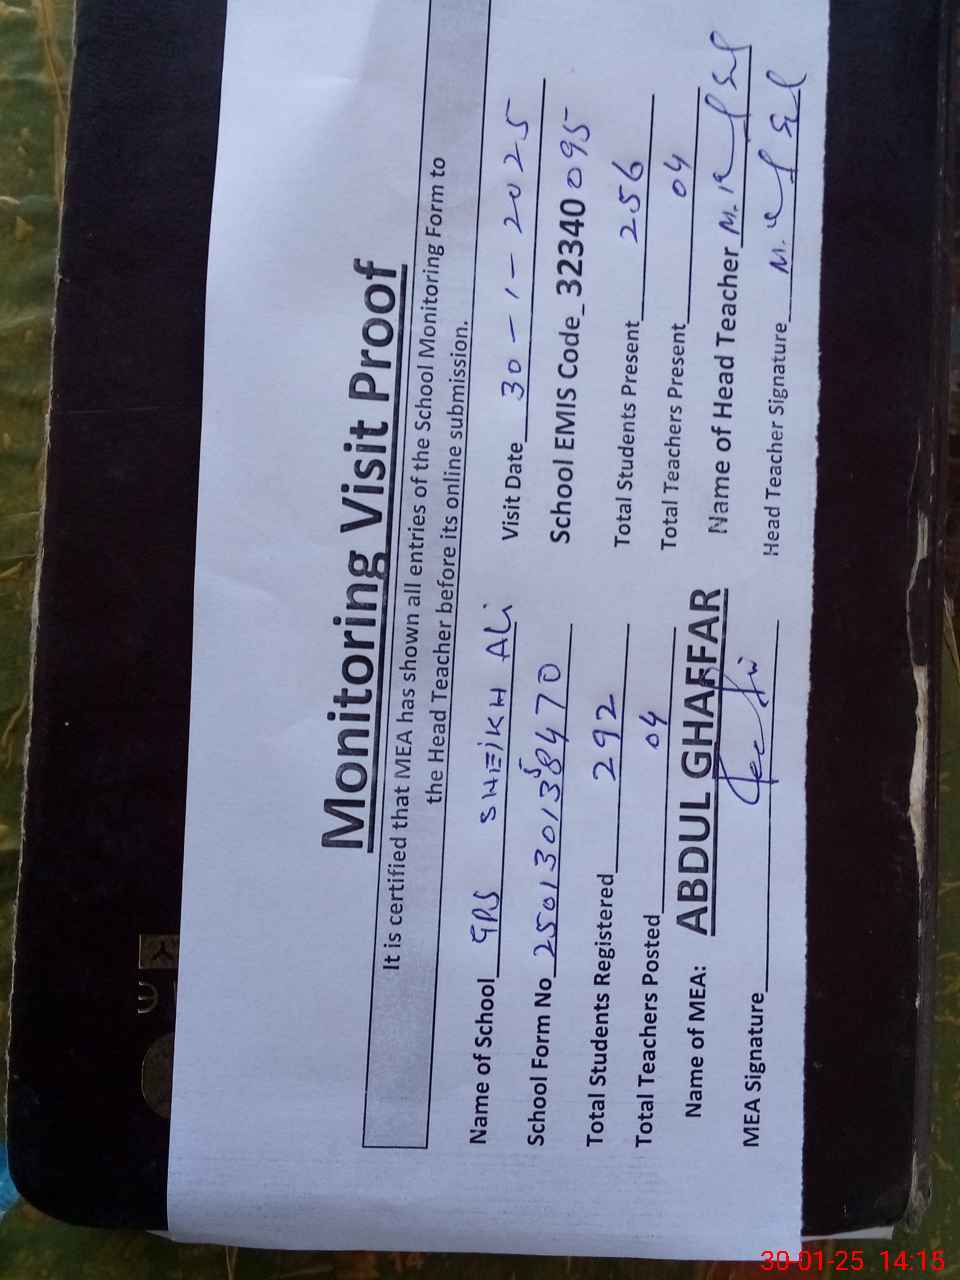 Monitoring Visit Proof
It is certified that MEA has shown all entries of the School Monitoring Form to
the Head Teacher before its online submission.
Name of School GPS SHEIKH ALi Visit Date 30-1-2025
School Form No School EMIS Code 32340095
Total Students Registered 292 Total Students Present 256
Total Teachers Posted 04 Total Teachers Present 04
Name of MEA: ABDUL GHAFFAR Name of Head Teacher M.
MEA Signature Head Teacher Signature M.
30-01-25 14:15